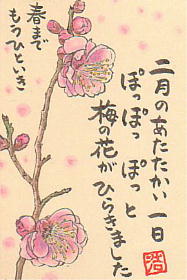 二月のあたたかい一日
ぽっぽっ ぽっと
梅の花がひらきました
春まで
もうひといき